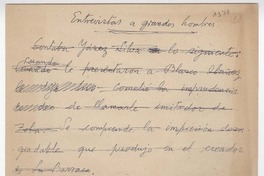 Entrevistas a grandes hombres
Contaba Yáñez Silva lo siguiente:
Cuando le presentaron a Blasco Ibáñez
cometió la imprudencia
de llamarle imitador de
Zola. Se comprende la impresión desa-
gradable que produjo en el creador
de La Barraca.